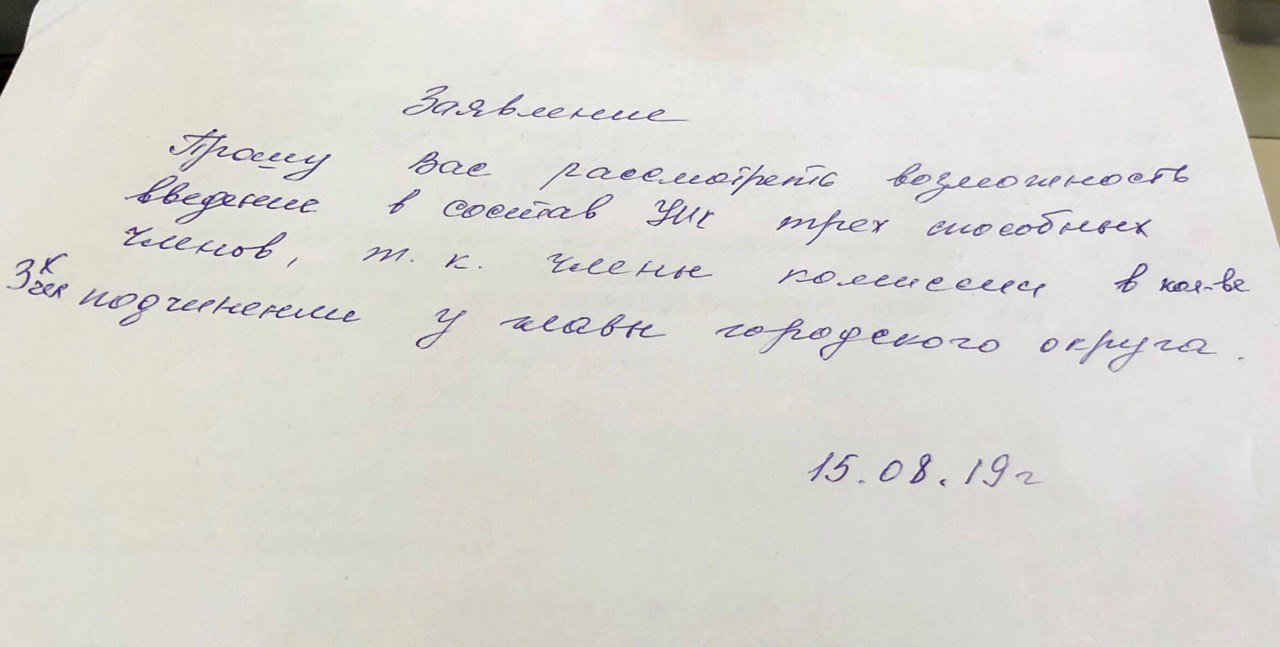 Заявление
Прошу Вас рассмотреть возможность
введение в состав УИК трех способных
членов, т. к. члены комиссии в кол-ве
3х чел подчинении у главы городского округа.
15.08.19г